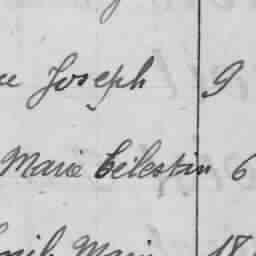 Joseph 9
Marie Célestin 6
Marie 18